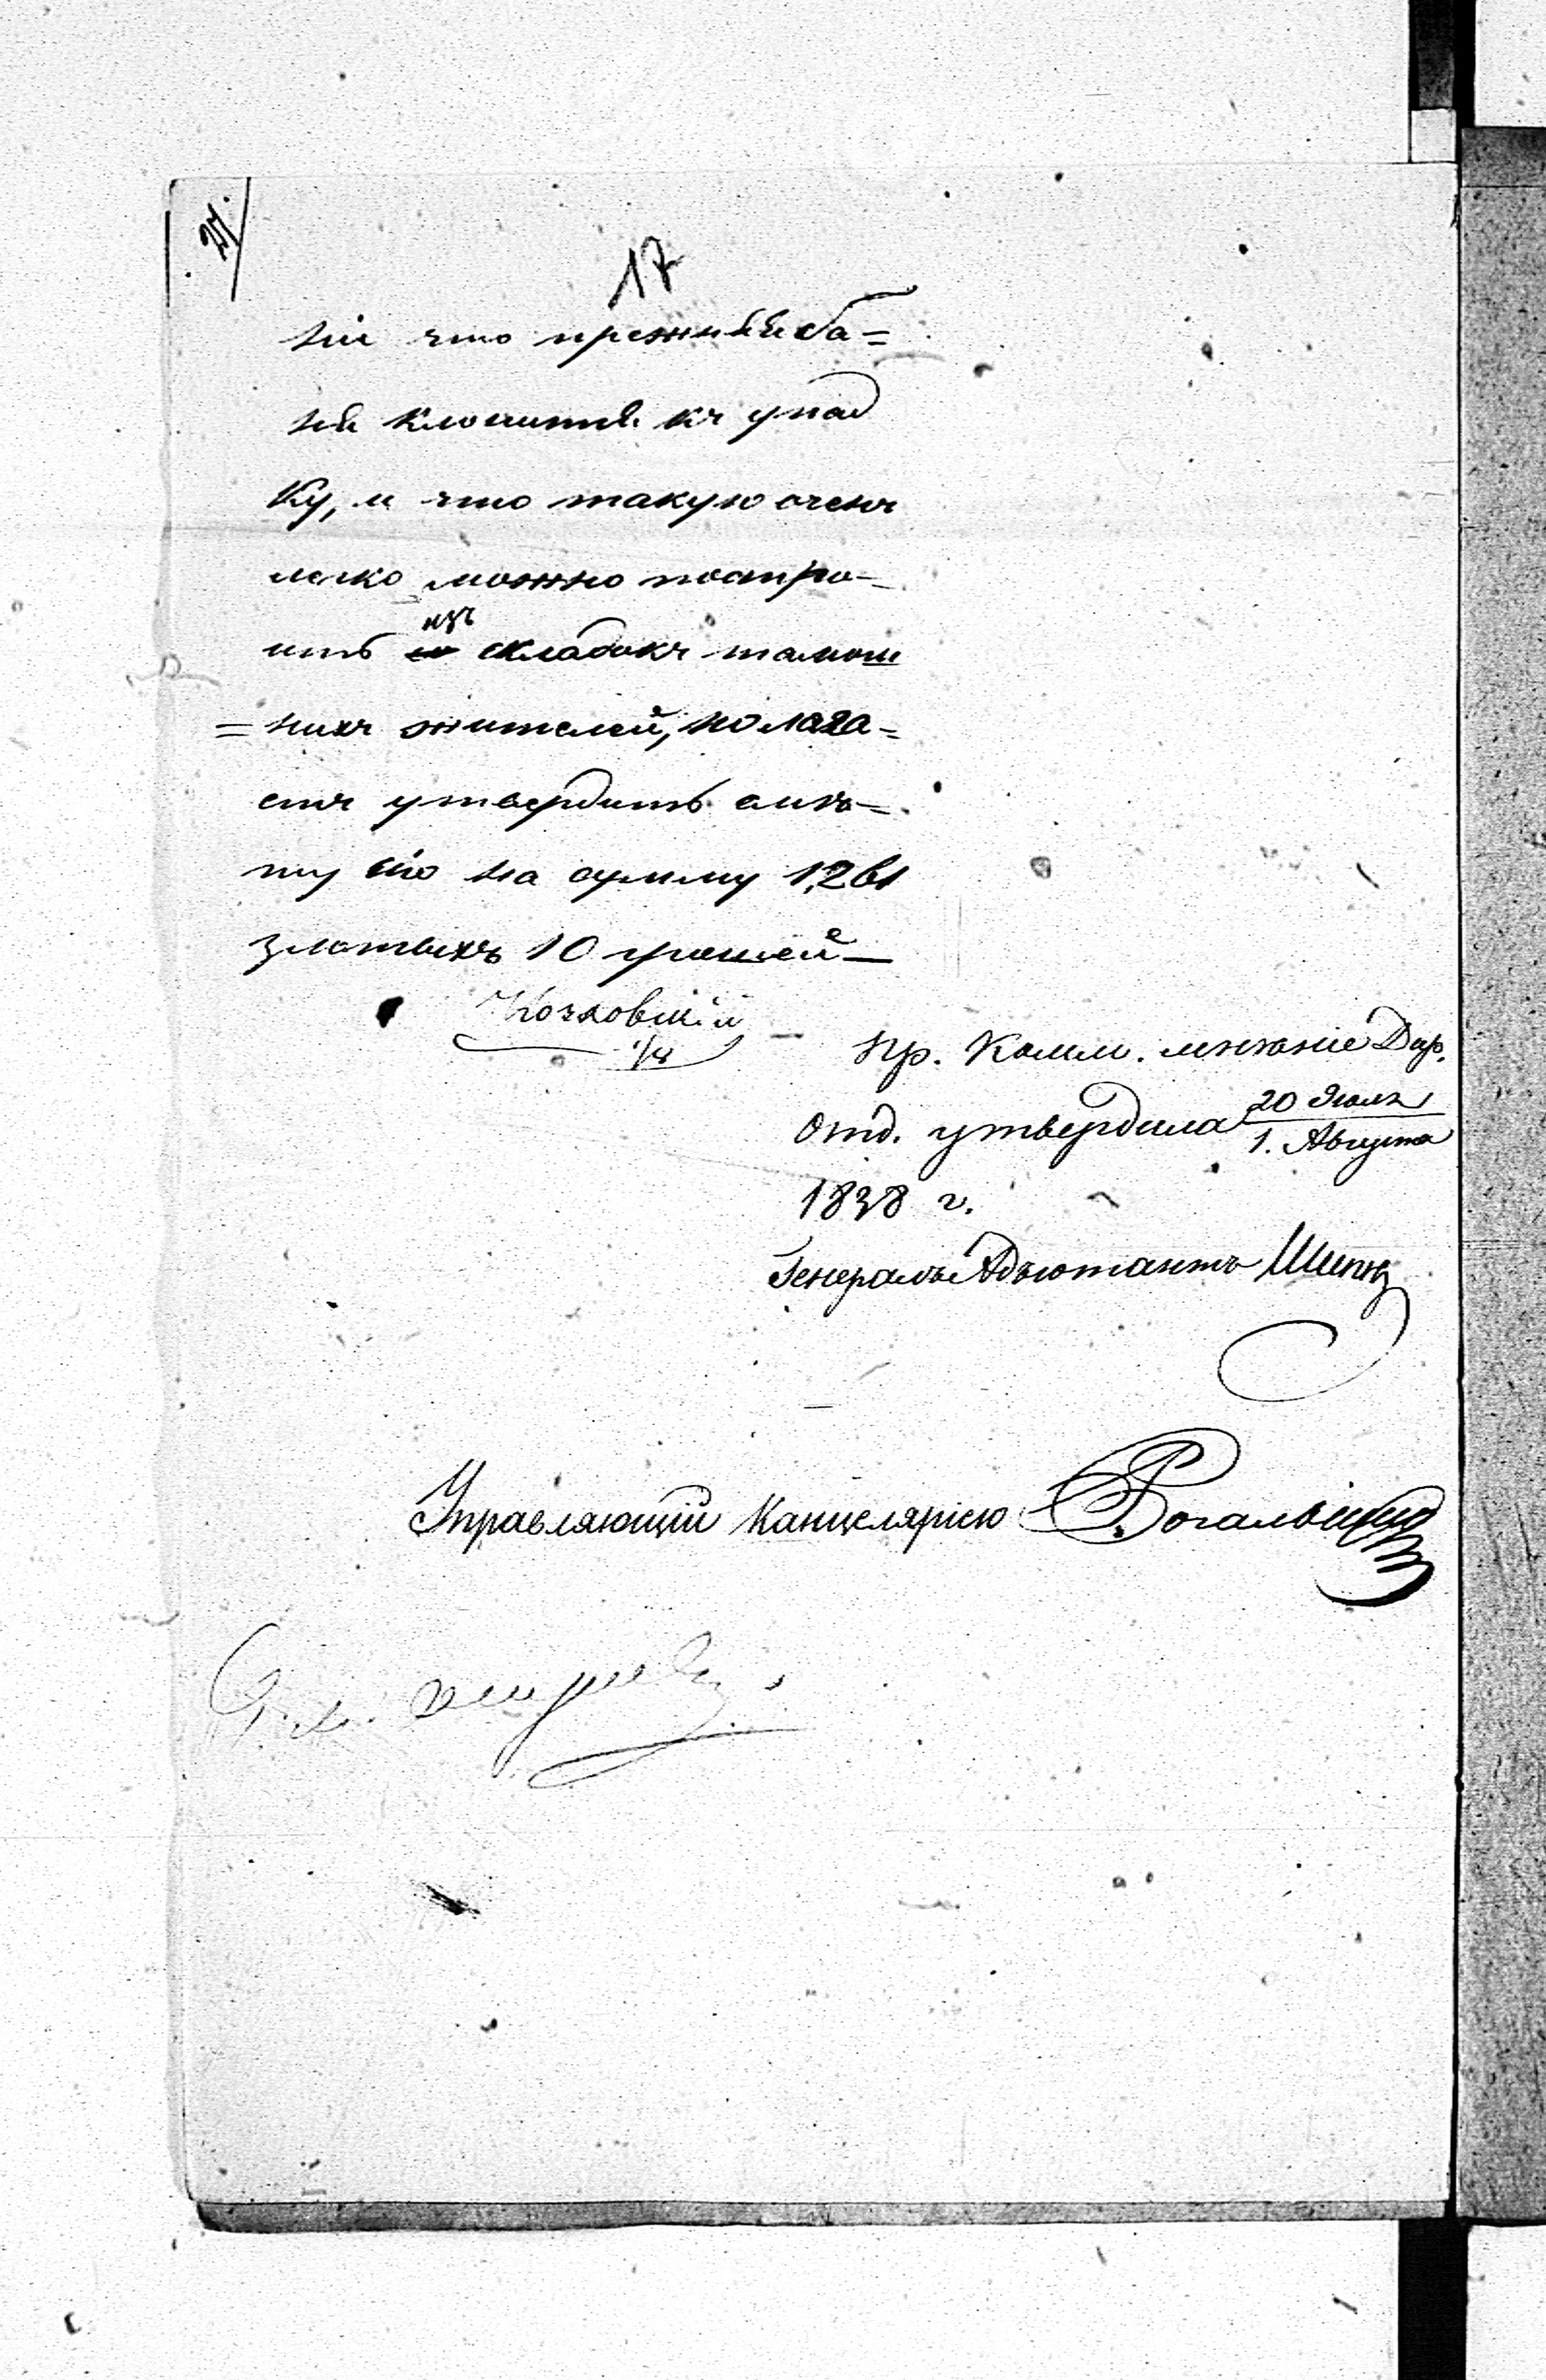 17
ніи что прежняя ба=
ня клонится къ упад
ку, и что такую очень
легко можно постро-
ить изъ складокъ тамош
=нихъ жителей, полага=
етъ утвердить смѣ=
ту сію на сумму 1,261
златыхъ 10 грошей—
Пр. Комм. мнѣніе Дир.
Отд. утвердила 20 Іюля / 1. Августа
1838 г.
Генералъ Адъютантъ Шипов
Управляющій Канцеляріею Рогальскій